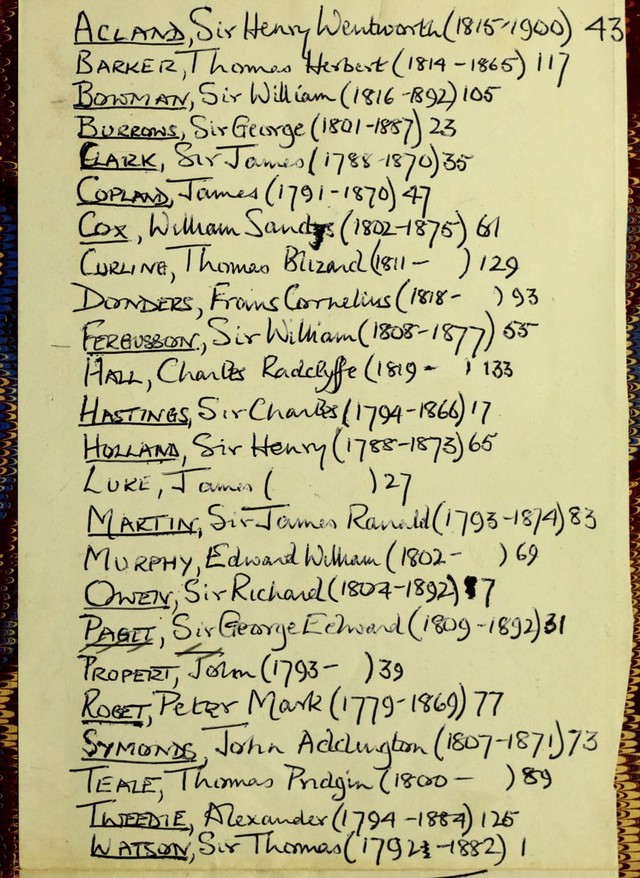 ACLAND, Sir Henry Wentworth (1815-1900) 43
BARKER, Thomas Herbert (1814-1865) 117
BOWMAN, Sir William (1816-1892) 105
BURROWS, Sir George (1801-1887) 23
CLARK, Sir James (1788-1870) 35
COPLAND, James (1791-1870) 47
COX, William Sandys (1802-1875) 61
CURLING, Thomas Blizard (1811- ) 129
DONDERS, Frans Cornelius (1818- ) 93
FERGUSSON, Sir William (1808-1877) 55
HALL, Charles Radclyffe (1819- ) 133
HASTINGS, Sir Charles (1794-1866) 17
HOLLAND, Sir Henry (1788-1873) 65
LUKE, James ( ) 27
MARTIN, Sir James Ranald (1793-1874) 83
MURPHY, Edward William (1802- ) 69
OWEN, Sir Richard (1804-1892) 7
PAGET, Sir George Edward (1809-1892) 31
PROPERT, John (1793- ) 39
ROGET, Peter Mark (1779-1869) 77
SYMONDS, John Addington (1807-1871) 73
TEALE, Thomas Pridgin (1800- ) 89
TWEEDIE, Alexander (1794-1884) 125
WATSON, Sir Thomas (1792-1882) 1